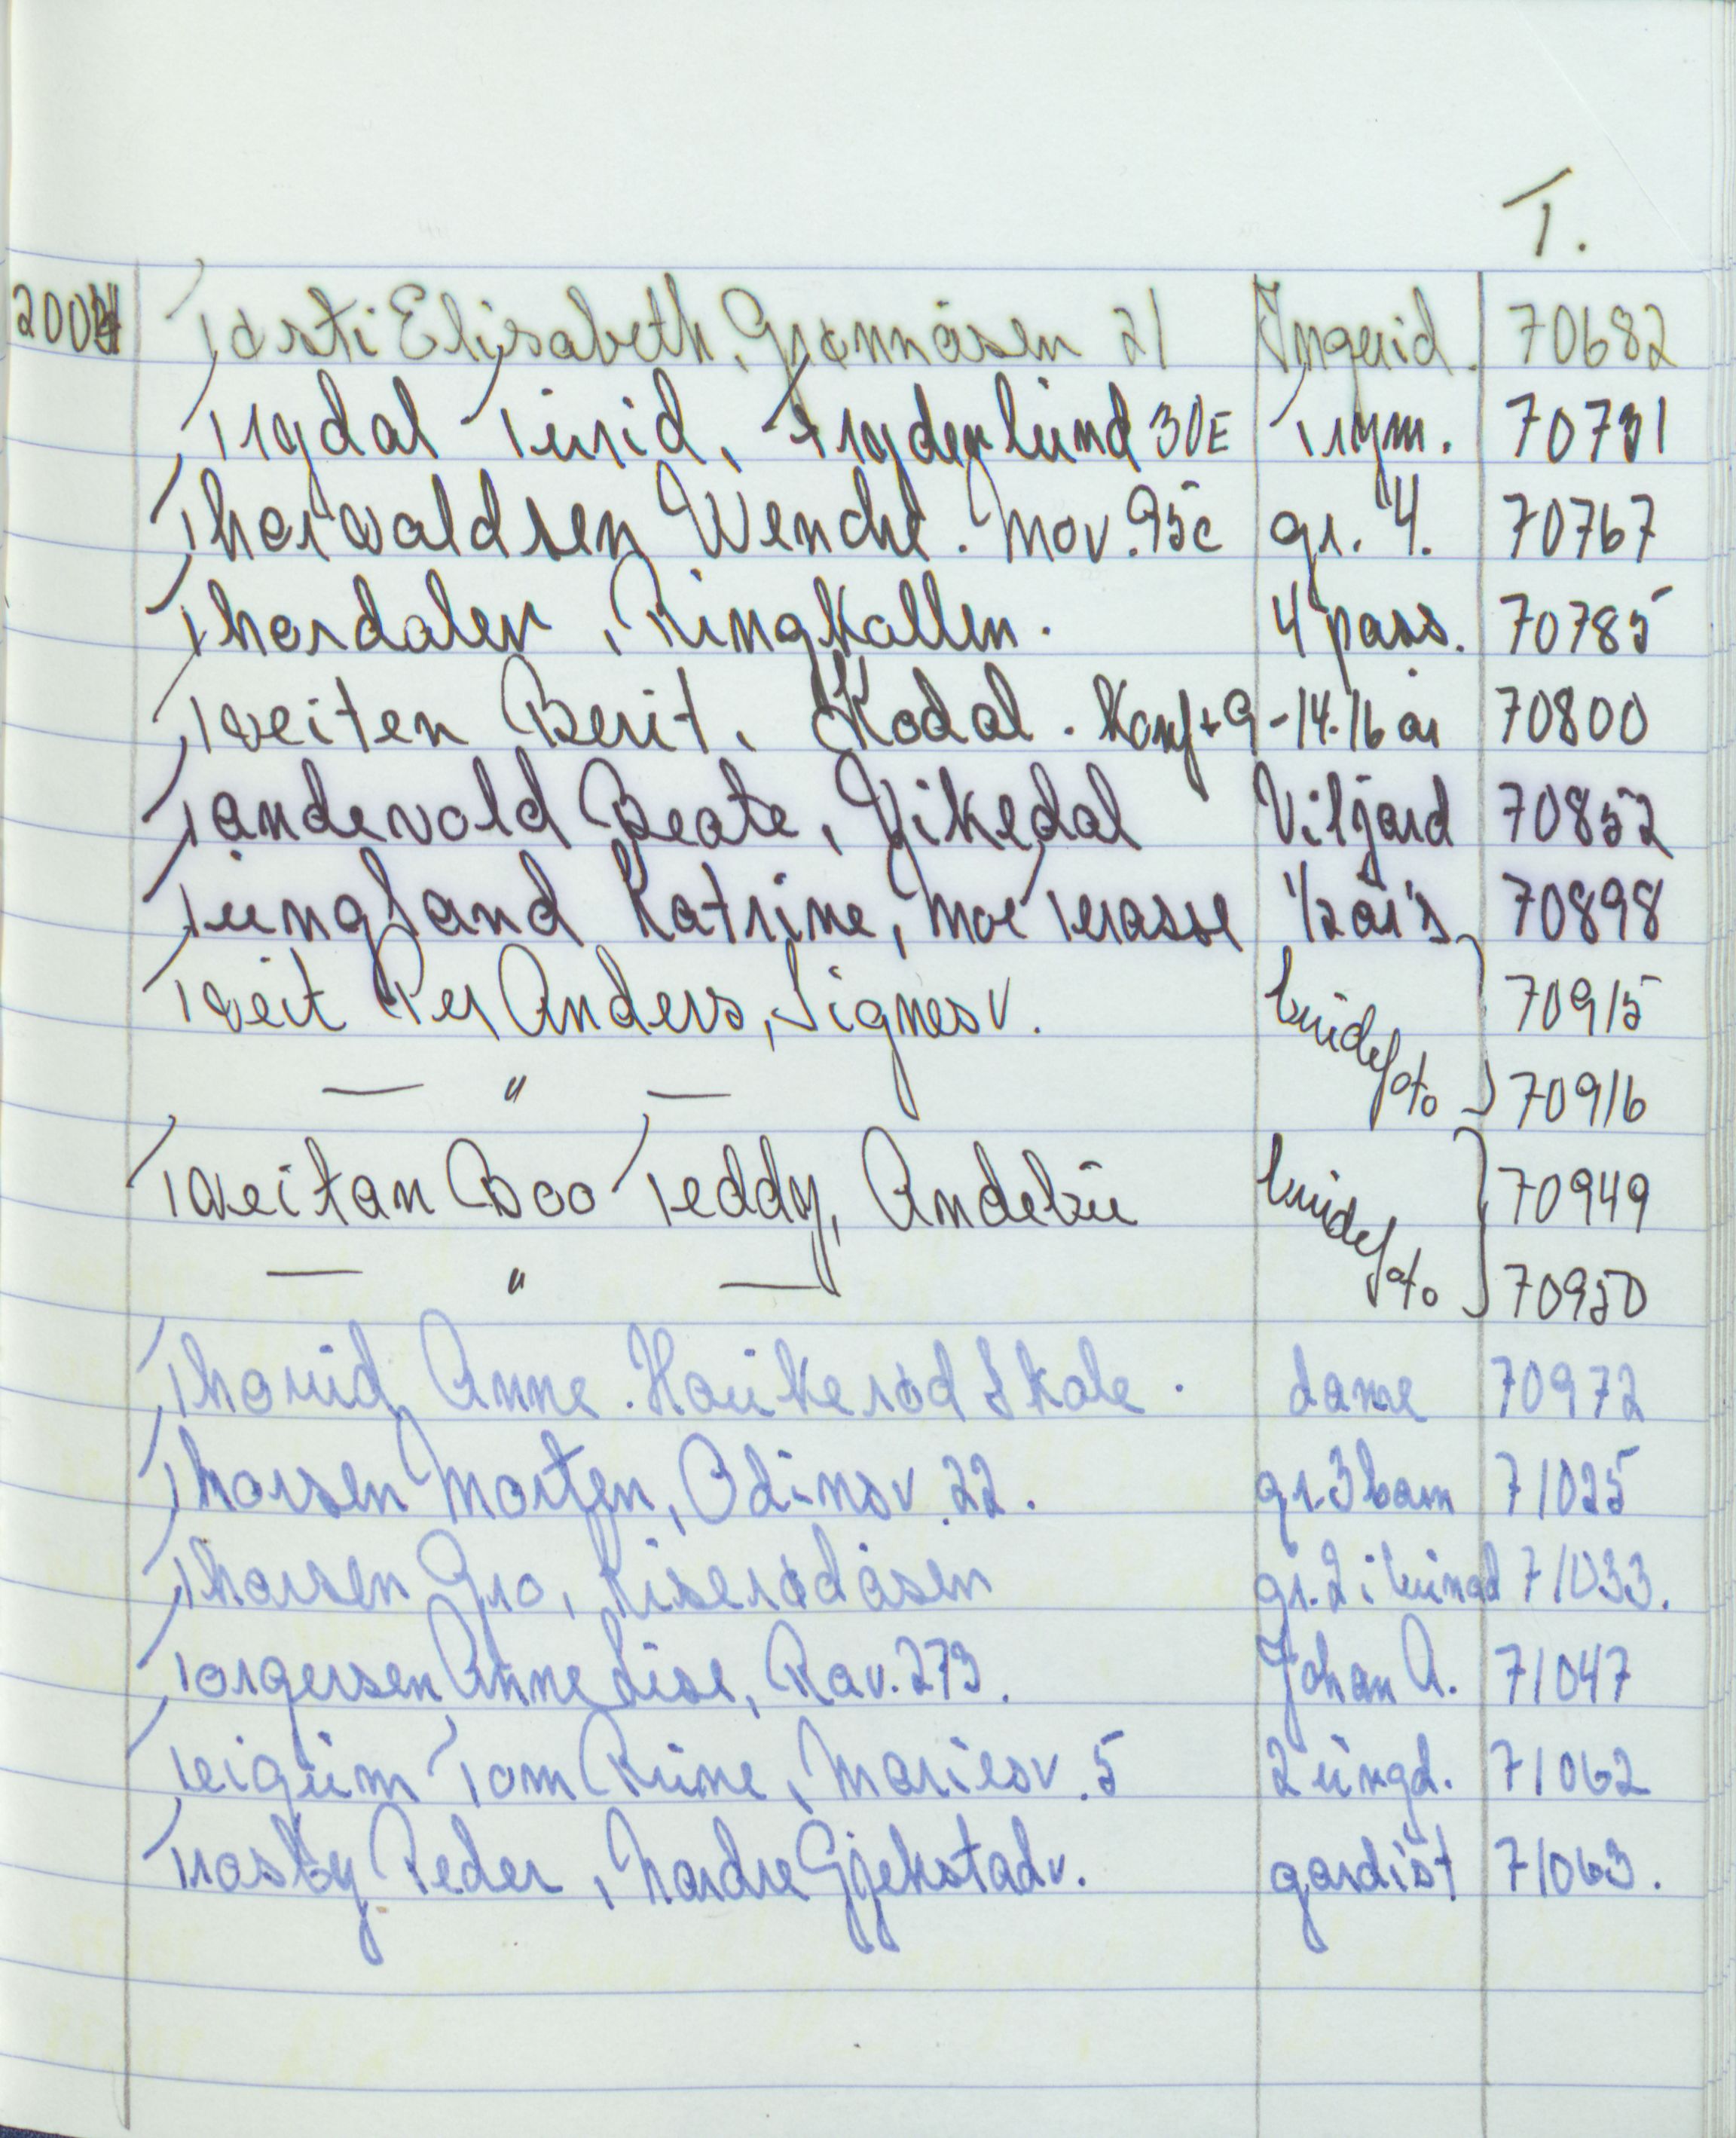 T.
2004 Tosti Elisabeth, Grønnåsen 21 Ingerid. 70682
Trydal Turid, Fryderlund 30E Trym. 70731
Thorvaldsen Wenche. Mov. 95c gr. 4. 70767
Thordalen, Ringkollen. 4 pass. 70785
Tveiten Berit, Kodal. Konf + 9 - 14. 16 år 70800
Tandevold Beate, Vikedal Viljard 70852
Tungland Katrine, Moe Terasse 1/2 år's 70898
Tveit Per Anders, Signes v. brudefoto 70915
— " — 70916
Tveitan Boo Teddy, Andebu brudefoto 70949
— " — 70950
Thorud Anne. Haukerød Skole. dame 70972
Thorsen Morten, Odinsv. 22. gr. 3 barn 71025
Thorsen Gro, Riserødåsen gr. 2 i bunad 71033.
Torgersen Anne Lise, Rav. 273. Johan A. 71047
Teigum Tom Rune, Mariesv. 5 2 ungd. 71062
Trosby Peder, Nordre Gjekstadv. gardist 71063.